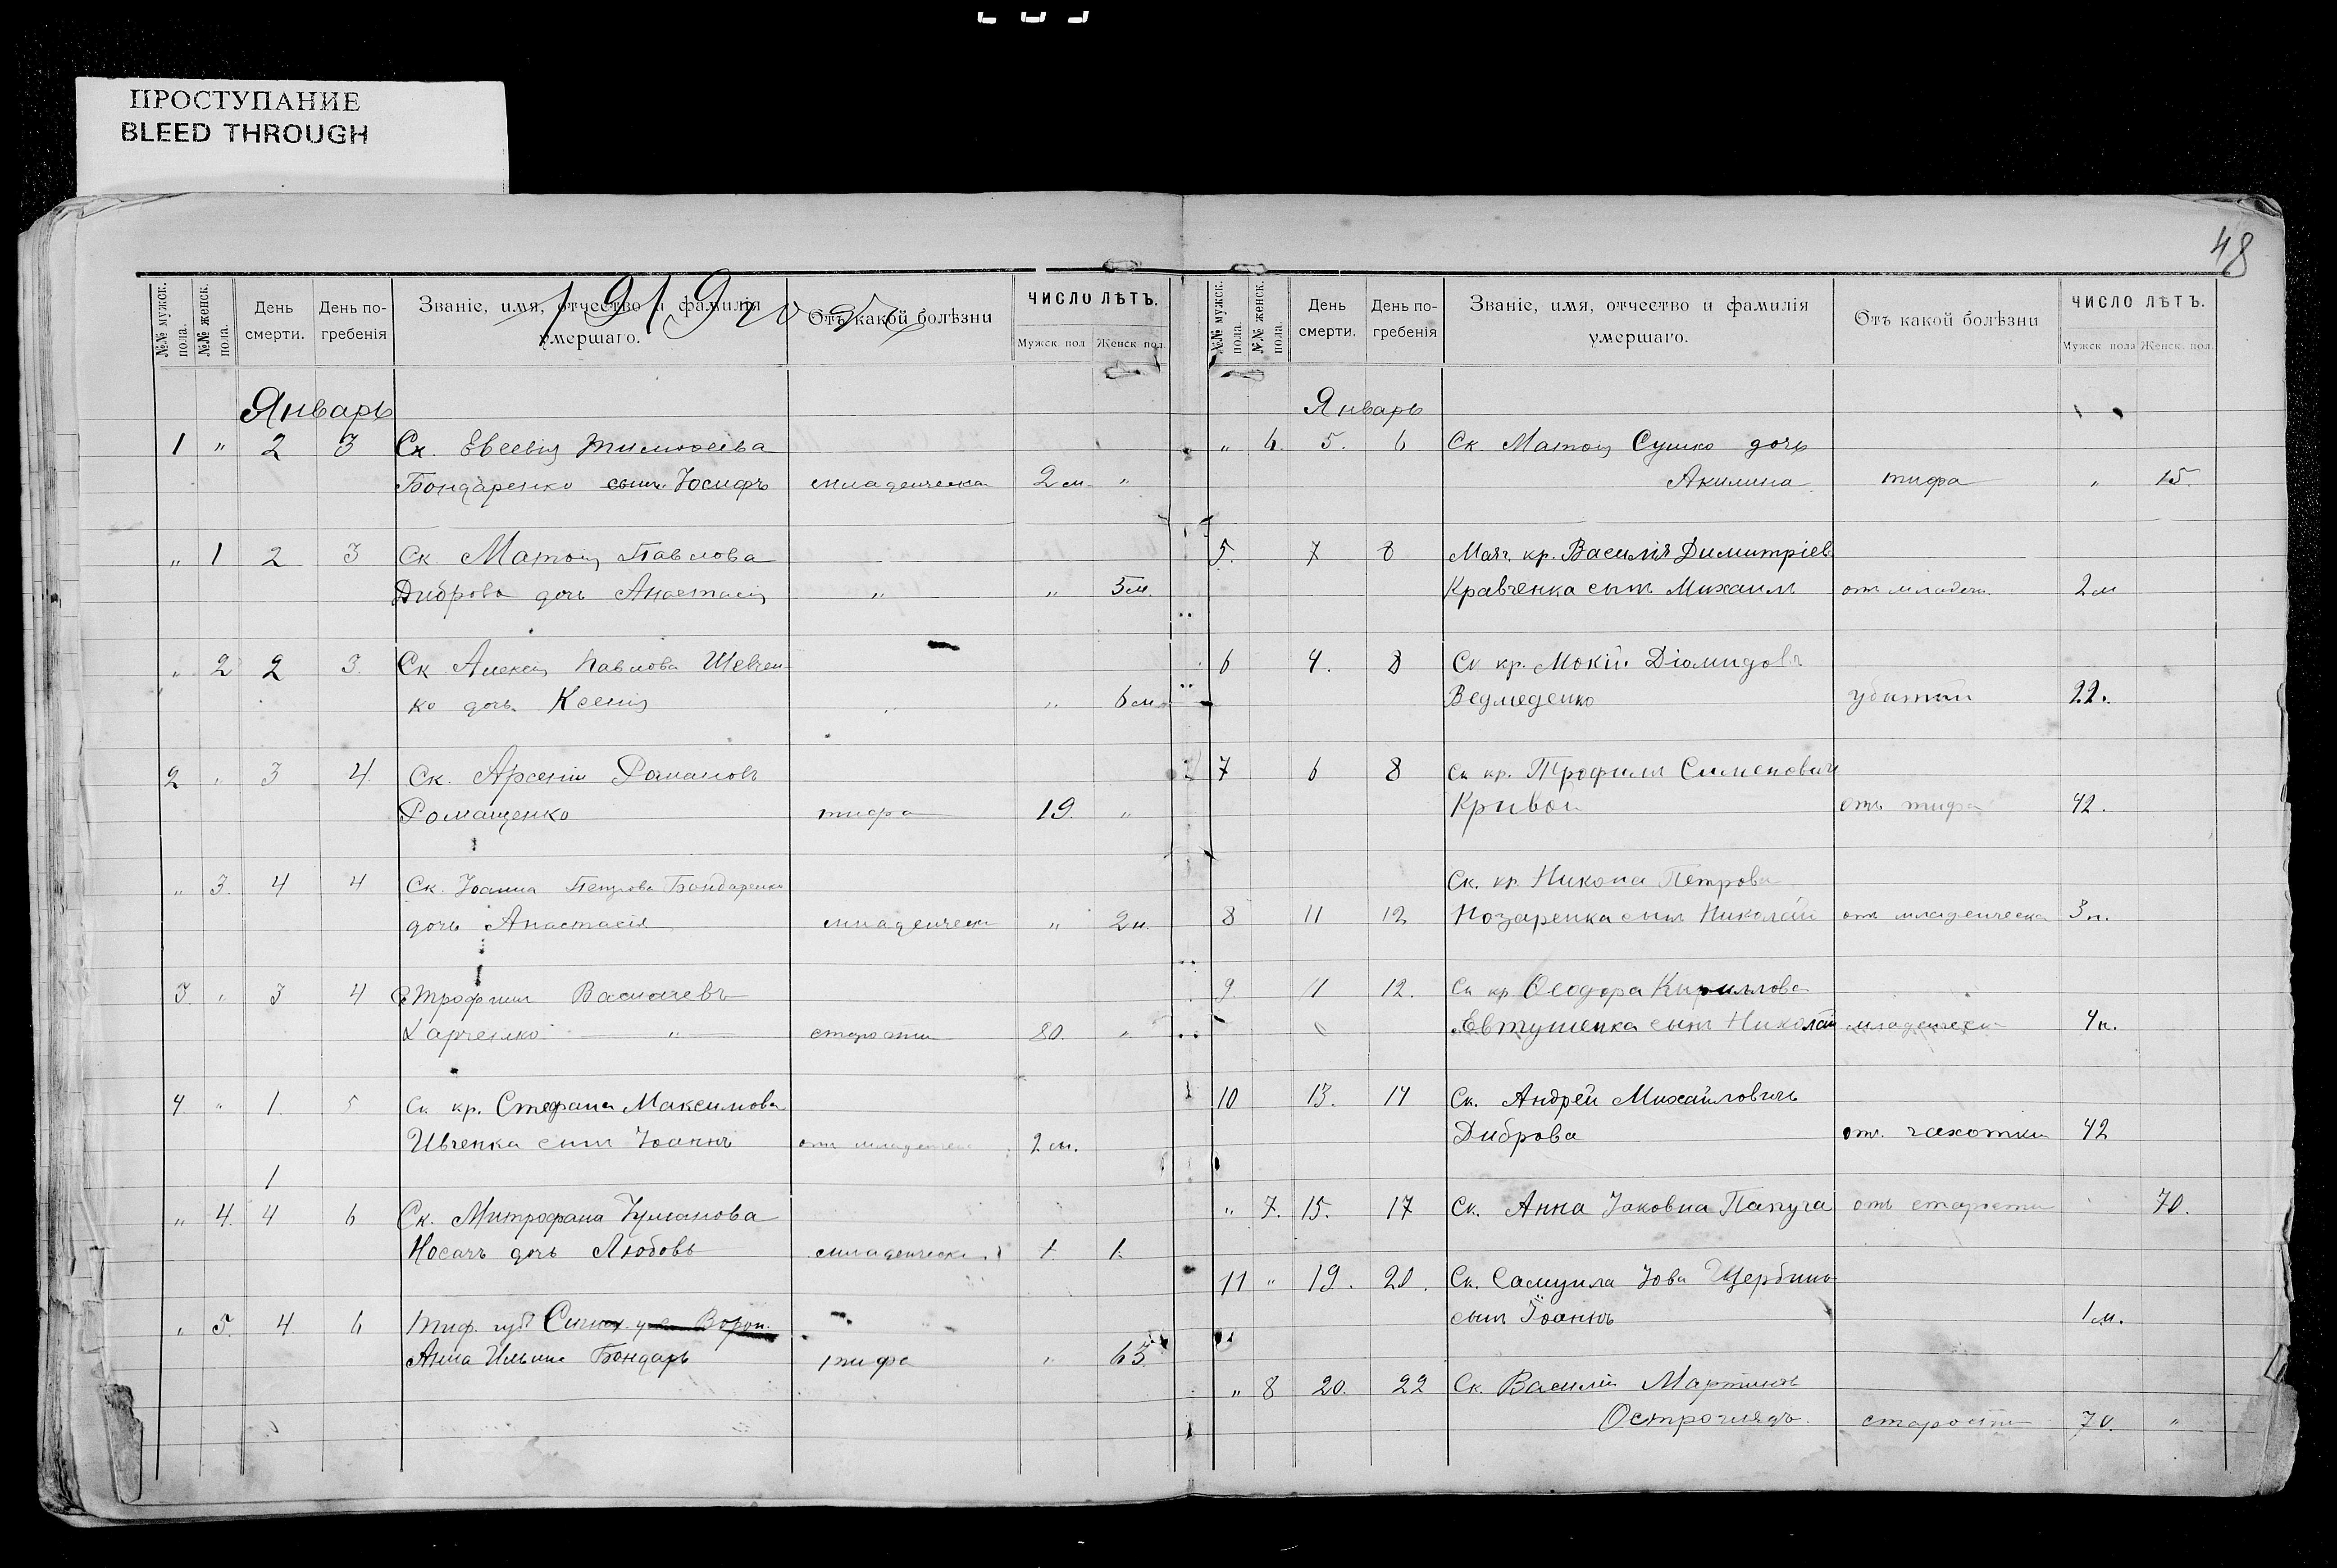 ПРОСТУПАНИЕ
BLEED THROUGH
48
1919 го
№№ мужск. пола.
№№ женск. пола.
День смерти.
День погребенія
Званіе, имя, отчество и фамилія
умершаго.
Отъ какой болѣзни
ЧИСЛО ЛѢТЪ.
Мужск. пол Женск пол.
Январь
1 " 2 3 Ск. Евсевія Тимоѳеева
Бондаренко сынъ Іосифъ младенческа 2 м. "
" 1 2 3 Ск. Матѳія Павлова
Диброва дочь Анастасія " " 5 м.
" 2 2 3. Ск Алексія Павлова Шевчен
ко дочь Ксенія " " 6 м.
2 " 3 4. Ск. Арсеній Романовъ
Ромащенко тифа 19. "
" 3. 4 4 Ск. Іоанна Петрова Бондаренко
дочь Анастасія младенческ " 2 н.
3 " 3 4 Трофим Василіевъ
Харченко " старости 80. "
4 " 1. 5 Ск кр. Стефана Максимова
Ивченка сынъ Іоаннъ отъ младенчес 2 м.
1
" 4. 4 6 Ск. Митрофана
Носачъ дочь Любовь младенческ. 1. 1.
" 5. 4 6 губ. Ворон.
Анна Ильина Бондарь тифа " 65.
№№ мужск. пола.
№№ женск. пола.
День смерти.
День погребенія
Званіе, имя, отчество и фамилія
умершаго.
Отъ какой болѣзни
ЧИСЛО ЛѢТЪ.
Мужск пола Женск. пол.
Январь
" 6. 5. 6 Ск. Матѳія Сушко дочь
Акилина тифа " 15.
5. 7 8 кр. Василія Димитріев
Кравченка сынъ Михаилъ отъ младен. 2 м
6 4. 8 Ск кр. Мокій Діомидовъ
Ведмеденко убитый 22.
7 6 8 Ск кр. Трофимъ Сименовичъ
Кривой отъ тифа 42.
Ск. кр. Никона Петрова
8 11 12 Нозаренка сынъ Николай отъ младенческа 3 н.
9. 11 12. Ск кр Ѳеодора Кириллова
Евтушенка сынъ Николай младенческ 4 н.
10 13. 14 Ск. Андрей Михайловичъ
Диброва отъ чахотки 42
" 7. 15. 17 Ск. Анна Іаковна Папуча отъ старости 70.
11 " 19. 20. Ск. Самуила Іова Щербины
сынъ Іоаннъ 1 м.
" 8 20. 22 Ск. Василій Мартиновъ
Остроглядъ. старости 70. "